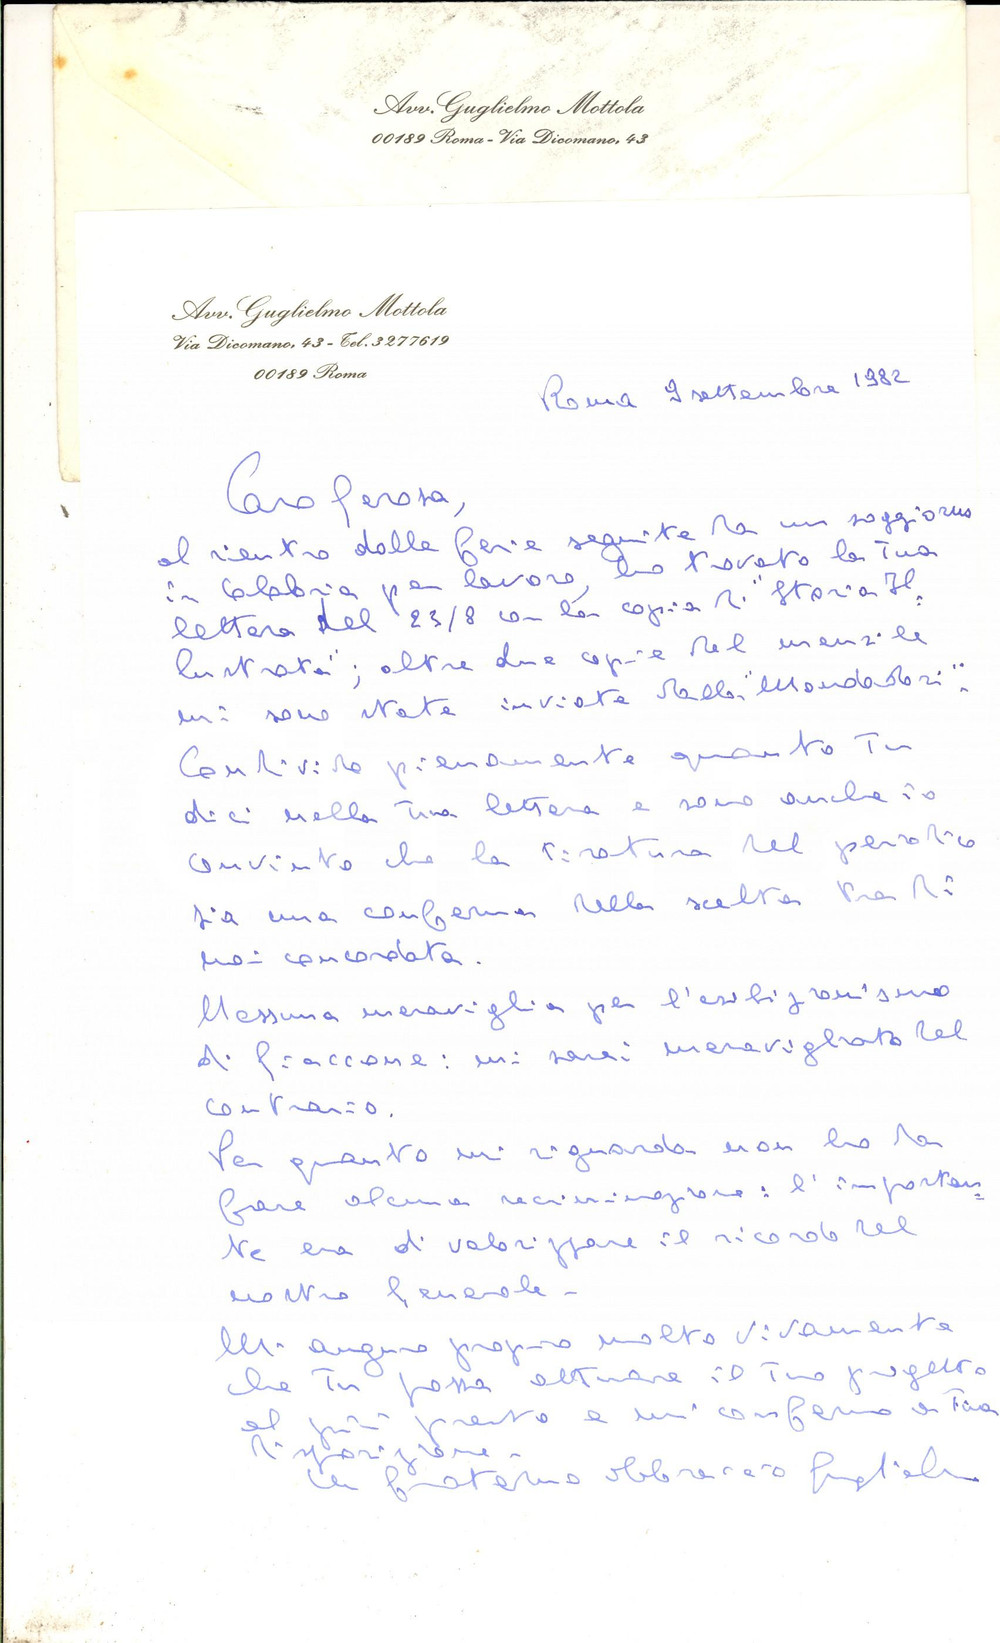 Avv. Guglielmo Mottola
00189 Roma - Via Dicomano, 43
Avv. Guglielmo Mottola
Via Dicomano, 43 - Tel. 3277619
00189 Roma
Roma 9 settembre 1982
Caro Gerosa,
al rientro dalle ferie seguite da un soggiorno
in Calabria per lavoro, ho trovato la Tua
lettera del 23/8 con la copia di "Storia Il=
lustrata"; altre due copie del mensile
mi sono state inviate dalla "Mondadori".
Condivido pienamente quanto Tu
dici nella Tua lettera e sono anche io
convinto che la tiratura del periodico
sia una conferma della scelta tra di
noi concordata.
Nessuna meraviglia per l'esibizionismo
di Giaccone: mi sarei meravigliato del
contrario.
Per quanto mi riguarda non ho da
fare alcuna recriminazione: l'importan=
te era di valorizzare il ricordo del
nostro Generale -
Mi auguro proprio molto vivamente
che Tu possa attuare il Tuo progetto
al più presto e mi confermo a Tua
disposizione -
Un fraterno abbraccio Guglielmo